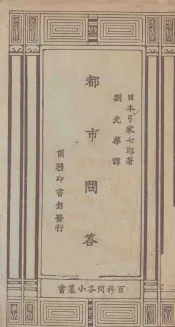 日本弓家七郎著
劉光華譯
都市問答
商務印書館發行
百科問答小叢書